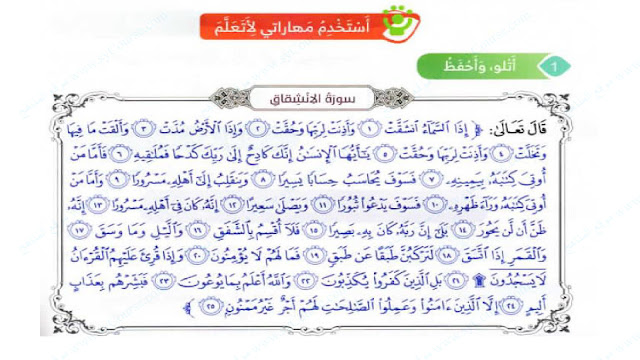 أَسْتَخْدِمُ مَهاراتي لِأَتَعَلَّمَ
1 أَتْلو، وَأَحْفَظُ
سورَةُ الِانْشِقاقِ
قَالَ تَعَالَى: ﴿ إِذَا ٱلسَّمَآءُ ٱنشَقَّتْ ١ وَأَذِنَتْ لِرَبِّهَا وَحُقَّتْ ٢ وَإِذَا ٱلْأَرْضُ مُدَّتْ ٣ وَأَلْقَتْ مَا فِيهَا
وَتَخَلَّتْ ٤ وَأَذِنَتْ لِرَبِّهَا وَحُقَّتْ ٥ يَٰٓأَيُّهَا ٱلْإِنسَٰنُ إِنَّكَ كَادِحٌ إِلَىٰ رَبِّكَ كَدْحًا فَمُلَٰقِيهِ ٦ فَأَمَّا مَنْ
أُوتِىَ كِتَٰبَهُۥ بِيَمِينِهِۦ ٧ فَسَوْفَ يُحَاسَبُ حِسَابًا يَسِيرًا ٨ وَيَنقَلِبُ إِلَىٰٓ أَهْلِهِۦ مَسْرُورًا ٩ وَأَمَّا مَنْ
أُوتِىَ كِتَٰبَهُۥ وَرَآءَ ظَهْرِهِۦ ١٠ فَسَوْفَ يَدْعُوا۟ ثُبُورًا ١١ وَيَصْلَىٰ سَعِيرًا ١٢ إِنَّهُۥ كَانَ فِىٓ أَهْلِهِۦ مَسْرُورًا ١٣ إِنَّهُۥ
ظَنَّ أَن لَّن يَحُورَ ١٤ بَلَىٰٓ إِنَّ رَبَّهُۥ كَانَ بِهِۦ بَصِيرًا ١٥ فَلَآ أُقْسِمُ بِٱلشَّفَقِ ١٦ وَٱلَّيْلِ وَمَا وَسَقَ ١٧
وَٱلْقَمَرِ إِذَا ٱتَّسَقَ ١٨ لَتَرْكَبُنَّ طَبَقًا عَن طَبَقٍ ١٩ فَمَا لَهُمْ لَا يُؤْمِنُونَ ٢٠ وَإِذَا قُرِئَ عَلَيْهِمُ ٱلْقُرْءَانُ
لَا يَسْجُدُونَ ۩ ٢١ بَلِ ٱلَّذِينَ كَفَرُوا۟ يُكَذِّبُونَ ٢٢ وَٱللَّهُ أَعْلَمُ بِمَا يُوعُونَ ٢٣ فَبَشِّرْهُم بِعَذَابٍ
أَلِيمٍ ٢٤ إِلَّا ٱلَّذِينَ ءَامَنُوا۟ وَعَمِلُوا۟ ٱلصَّٰلِحَٰتِ لَهُمْ أَجْرٌ غَيْرُ مَمْنُونٍ ٢٥ ﴾